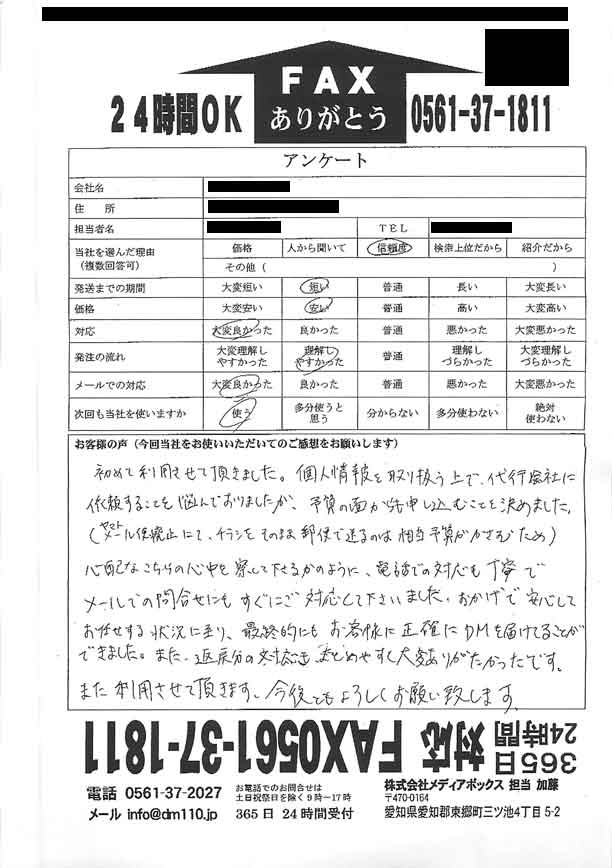 FAX
ありがとう
24時間OK
0561-37-1811
アンケート
会社名
住 所
担当者名 TEL
当社を選んだ理由 (複数回答可) 価格 人から聞いて 信頼度 検索上位だから 紹介だから
その他 ( )
発送までの期間 大変短い 短い 普通 長い 大変長い
価格 大変安い 安い 普通 高い 大変高い
対応 大変良かった 良かった 普通 悪かった 大変悪かった
発注の流れ 大変理解しやすかった 理解しやすかった 普通 理解しづらかった 大変理解しづらかった
メールでの対応 大変良かった 良かった 普通 悪かった 大変悪かった
次回も当社を使いますか 使う 多分使うと思う 分からない 多分使わない 絶対使わない
お客様の声(今回当社をお使いいただいてのご感想をお願いします)
初めて利用させて頂きました。個人情報を取り扱う上で、代行会社に
依頼することを悩んでおりましたが、予算の面から申し込むことを決めました。
(ヤマトメール便廃止にて、チラシをそのまま郵便で送るのは相当予算がかさむため)
心配なこちらの心中を察して下さるかのように、電話での対応も丁寧で
メールでの問合せにもすぐにご対応して下さいました。おかげで安心して
お任せする状況に至り、最終的にもお客様に正確にDMを届けることが
できました。また、返戻分の対応もまとめやすく大変ありがたかったです。
また利用させて頂きます。今後ともよろしくお願い致します。
365日
24時間
対応
FAX0561-37-1811
電話 0561-37-2027
メール info@dm110.jp
お電話でのお問合せは
土日祝祭日を除く9時~17時
365日 24時間受付
株式会社メディアボックス 担当 加藤
〒470-0164
愛知県愛知郡東郷町三ツ池4丁目5-2